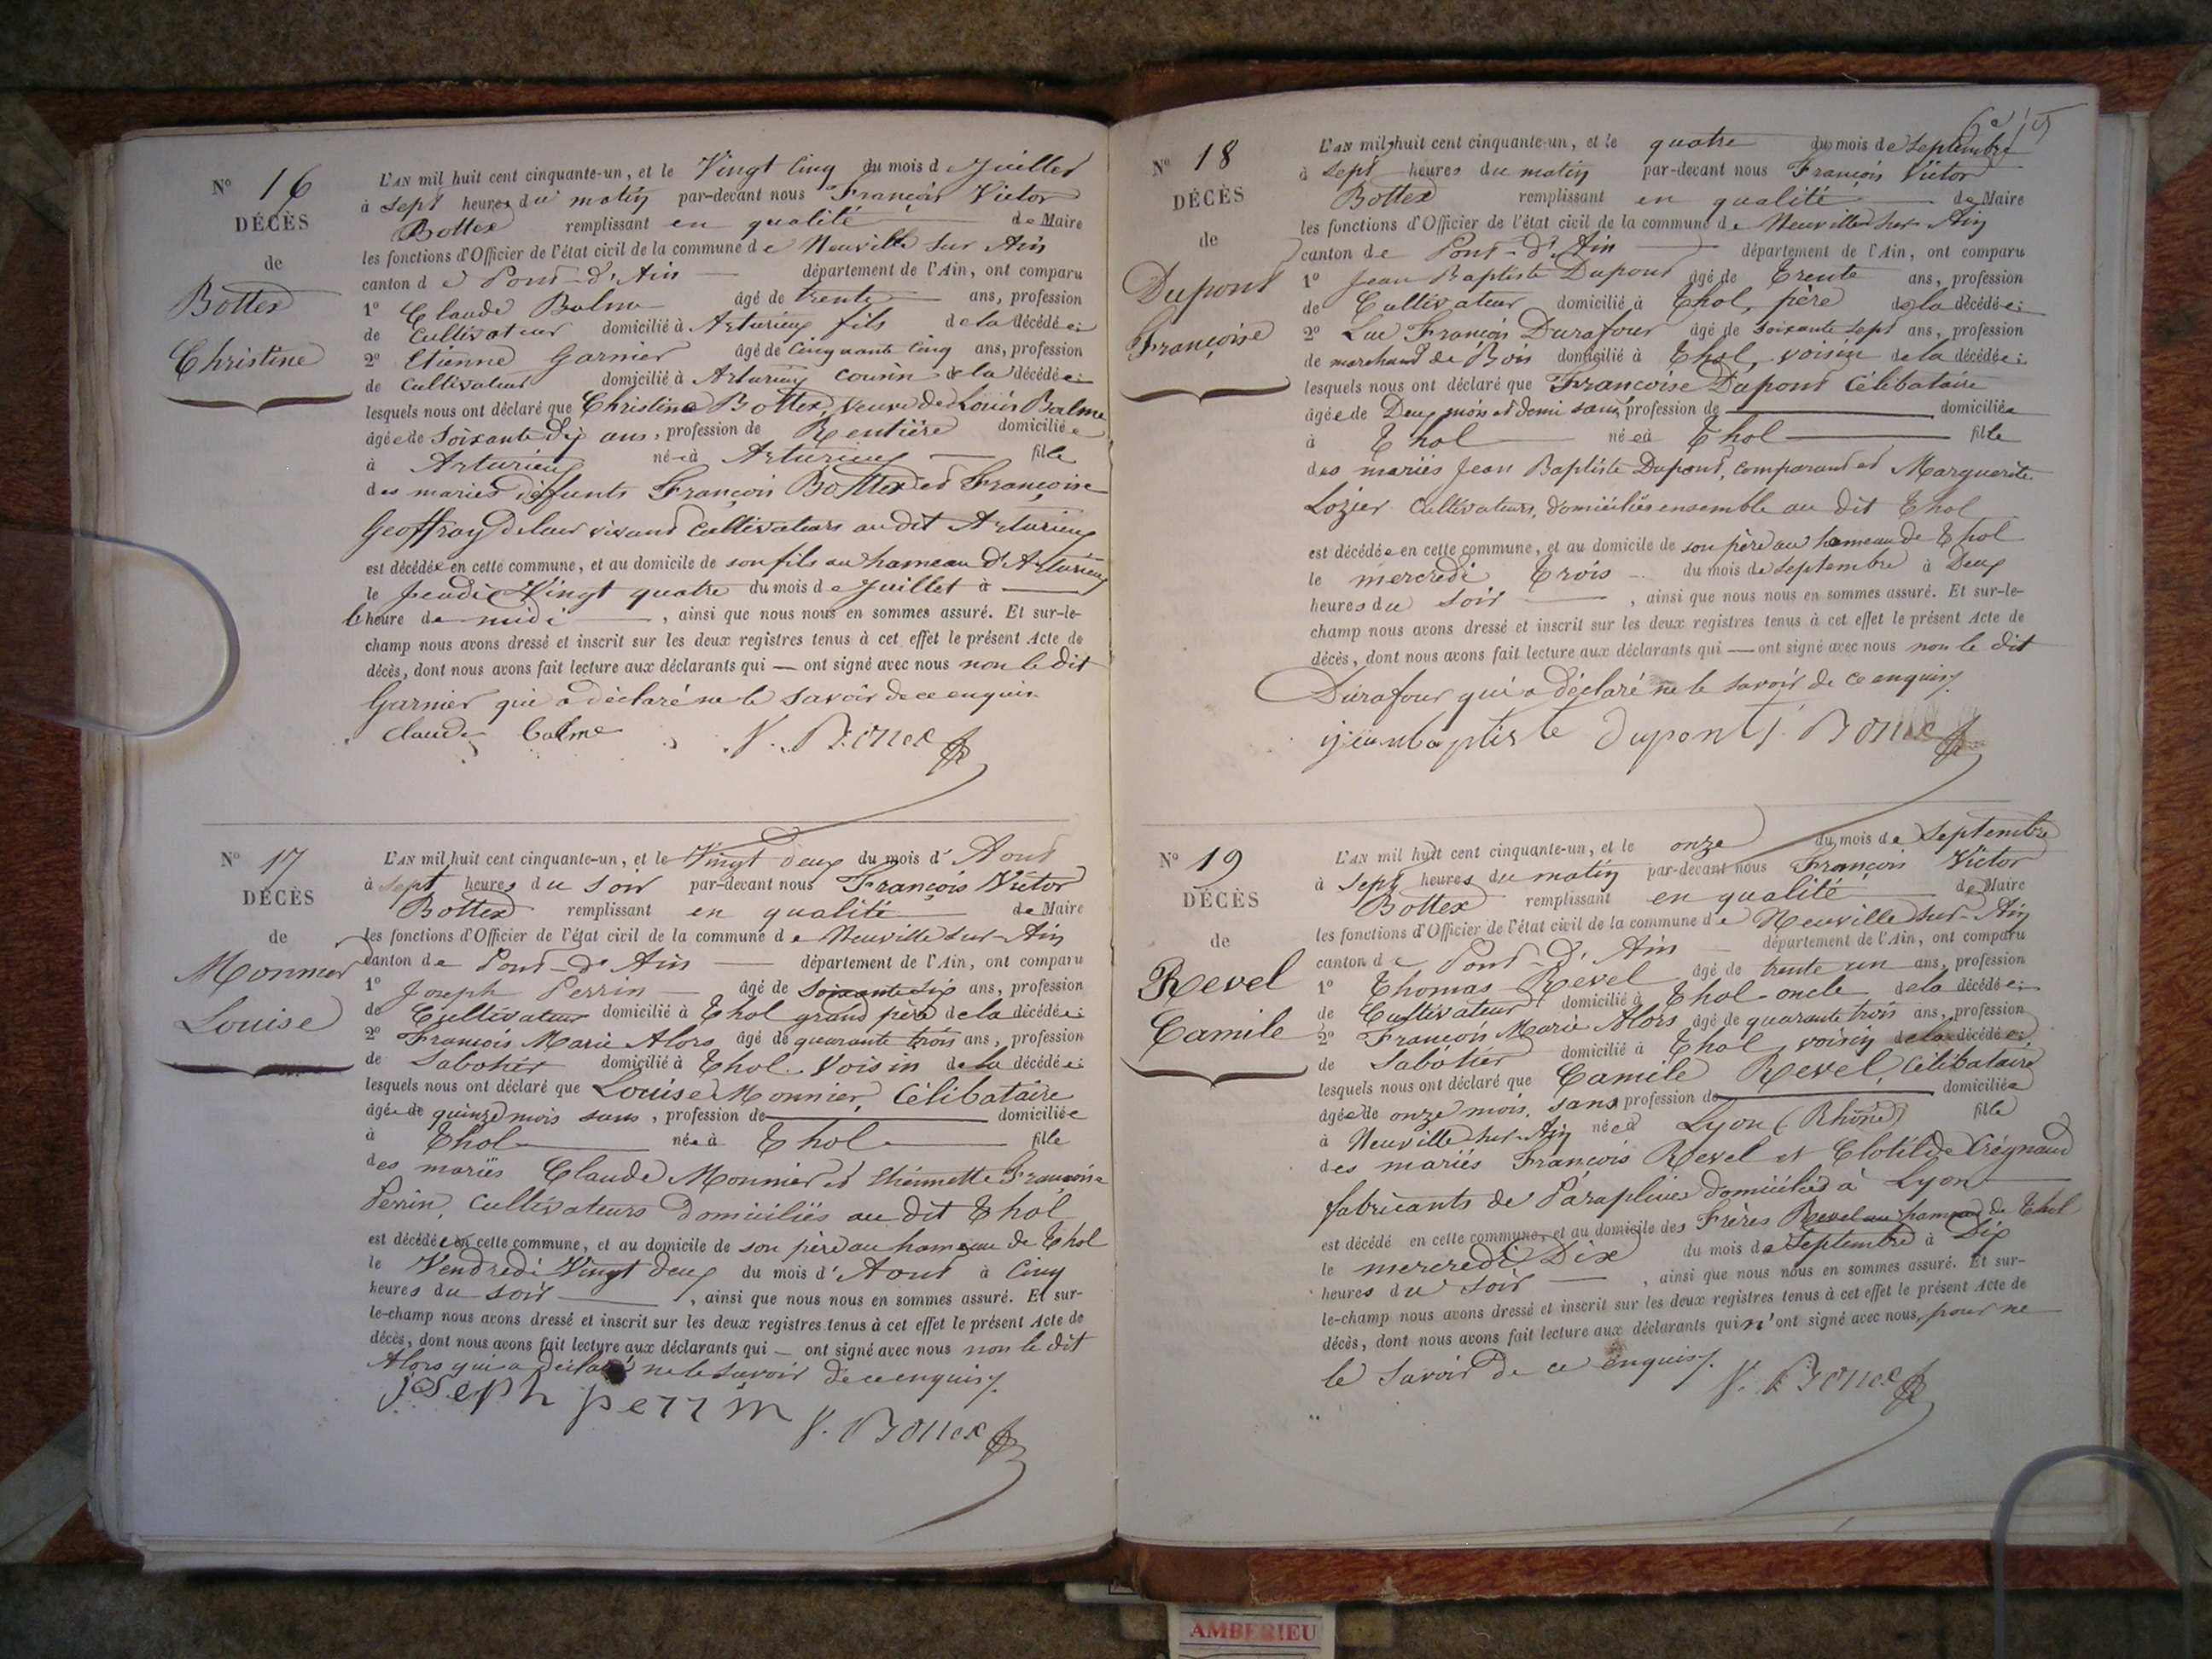 Nº 16
DÉCÈS
de
Bottex
Christine
L'AN mil huit cent cinquante-un, et le Vingt Cinq du mois de Juillet
à Sept heures du matin par-devant nous François Victor
Bottex remplissant en qualité de Maire
les fonctions d'Officier de l'état civil de la commune de Neuville sur Ain
canton de Pont-d'Ain département de l'Ain, ont comparu
1º Claude Balme âgé de trente ans, profession
de Cultivateur domicilié à Arturieux fils de la décédée:
2º Etienne Garnier âgé de Cinquante Cinq ans, profession
de Cultivateur domicilié à Arturieux cousin de la décédée:
lesquels nous ont déclaré que Christine Bottex, veuve de Louis Balme
âgée de Soixante Dix ans, profession de Rentière domiciliée
à Arturieux née à Arturieux fille
des mariés défunts François Bottex et Françoise
Geoffray de leur vivant cultivateurs au dit Arturieux
est décédée en cette commune, et au domicile de son fils au hameau d'Arturieux
le Jeudi Vingt quatre du mois de Juillet à
l'heure de midi , ainsi que nous nous en sommes assuré. Et sur-le-
champ nous avons dressé et inscrit sur les deux registres tenus à cet effet le présent Acte de
décès, dont nous avons fait lecture aux déclarants qui — ont signé avec nous non le dit
Garnier qui a déclaré ne le savoir de ce enquis
Claude Balme V. Bottex
Nº 17
DÉCÈS
de
Monnier
Louise
L'AN mil huit cent cinquante-un, et le Vingt deux du mois d'Aout
à sept heures du soir par-devant nous François Victor
Bottex remplissant en qualité de Maire
les fonctions d'Officier de l'état civil de la commune de Neuville sur Ain
canton de Pont-d'Ain département de l'Ain, ont comparu
1º Joseph Perrin âgé de Soixante Six ans, profession
de Cultivateur domicilié à Thol grand père de la décédée:
2º François Marie Alors âgé de quarante trois ans, profession
de Sabotier domicilié à Thol Voisin de la décédée:
lesquels nous ont déclaré que Louise Monnier, Célibataire
âgée de quinze mois sans, profession de domiciliée
à Thol née à Thol fille
des mariés Claude Monnier et Etiennette Françoise
Perrin, Cultivateurs Domiciliés au dit Thol
est décédée en cette commune, et au domicile de son père au hameau de Thol
le Vendredi Vingt deux du mois d'Aout à Cinq
heures du soir , ainsi que nous nous en sommes assuré. Et sur-
le-champ nous avons dressé et inscrit sur les deux registres tenus à cet effet le présent Acte de
décès, dont nous avons fait lecture aux déclarants qui — ont signé avec nous non le dit
Alors qui a déclaré ne le savoir de ce enquis
joseph perrin V. Bottex
Nº 18
DÉCÈS
de
Dupont
Françoise
L'AN mil huit cent cinquante-un, et le quatre du mois de Septembre
à Sept heures du matin par-devant nous François Victor
Bottex remplissant en qualité de Maire
les fonctions d'Officier de l'état civil de la commune de Neuville sur Ain
canton de Pont-d'Ain département de l'Ain, ont comparu
1º Jean Baptiste Dupont âgé de Trente ans, profession
de Cultivateur domicilié à Thol, père de la décédée:
2º Luc François Durafour âgé de Soixante Sept ans, profession
de marchand de Bois domicilié à Thol, voisin de la décédée:
lesquels nous ont déclaré que Françoise Dupont Célibataire
âgée de Deux mois et demi sans, profession de domiciliée
à Thol née à Thol fille
des mariés Jean Baptiste Dupont, comparant et Marguerite
Lozier Cultivateurs, domiciliés ensemble au dit Thol
est décédée en cette commune, et au domicile de son père au hameau de Thol
le mercredi Trois du mois de Septembre à Deux
heures du soir , ainsi que nous nous en sommes assuré. Et sur-le-
champ nous avons dressé et inscrit sur les deux registres tenus à cet effet le présent Acte de
décès, dont nous avons fait lecture aux déclarants qui — ont signé avec nous non le dit
Durafour qui a déclaré ne le savoir de ce enquis
jeanbaptiste dupont V. Bottex
Nº 19
DÉCÈS
de
Revel
Camile
L'AN mil huit cent cinquante-un, et le onze du mois de Septembre
à Sept heures du matin par-devant nous François Victor
Bottex remplissant en qualité de Maire
les fonctions d'Officier de l'état civil de la commune de Neuville sur Ain
canton de Pont-d'Ain département de l'Ain, ont comparu
1º Thomas Revel âgé de trente un ans, profession
de Cultivateur domicilié à Thol oncle de la décédée:
2º François Marie Alors âgé de quarante trois ans, profession
de Sabotier domicilié à Thol, voisin de la décédée:
lesquels nous ont déclaré que Camile Revel, Célibataire
âgée de onze mois, sans profession de domiciliée
à Neuville sur Ain née à Lyon (Rhône) fille
des mariés François Revel et Clotilde Crégnaud
fabricants de Parapluies domiciliés à Lyon
est décédé en cette commune, et au domicile des Frères Revel au hameau de Thol
le mercredi Dix du mois de Septembre à Dix
heures du soir , ainsi que nous nous en sommes assuré. Et sur-
le-champ nous avons dressé et inscrit sur les deux registres tenus à cet effet le présent Acte de
décès, dont nous avons fait lecture aux déclarants qui n'ont signé avec nous, pour ne
le savoir de ce enquis
V. Bottex
AMBERIEU